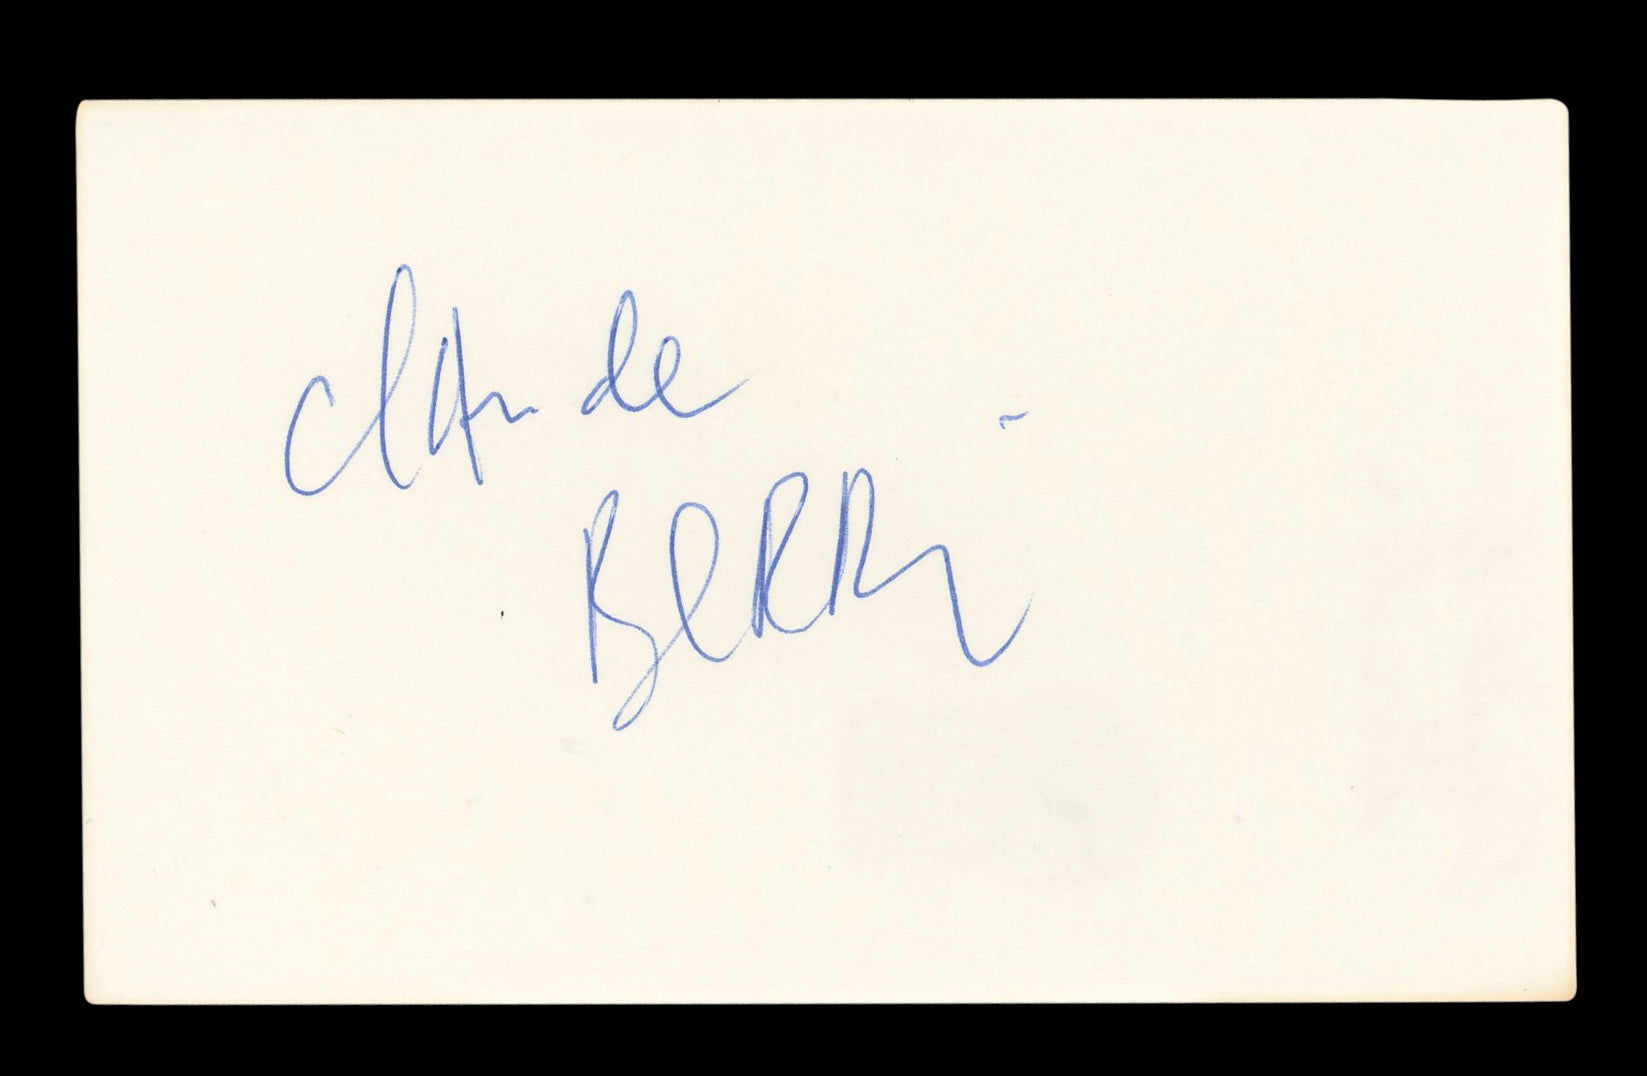 Claude
BERRI